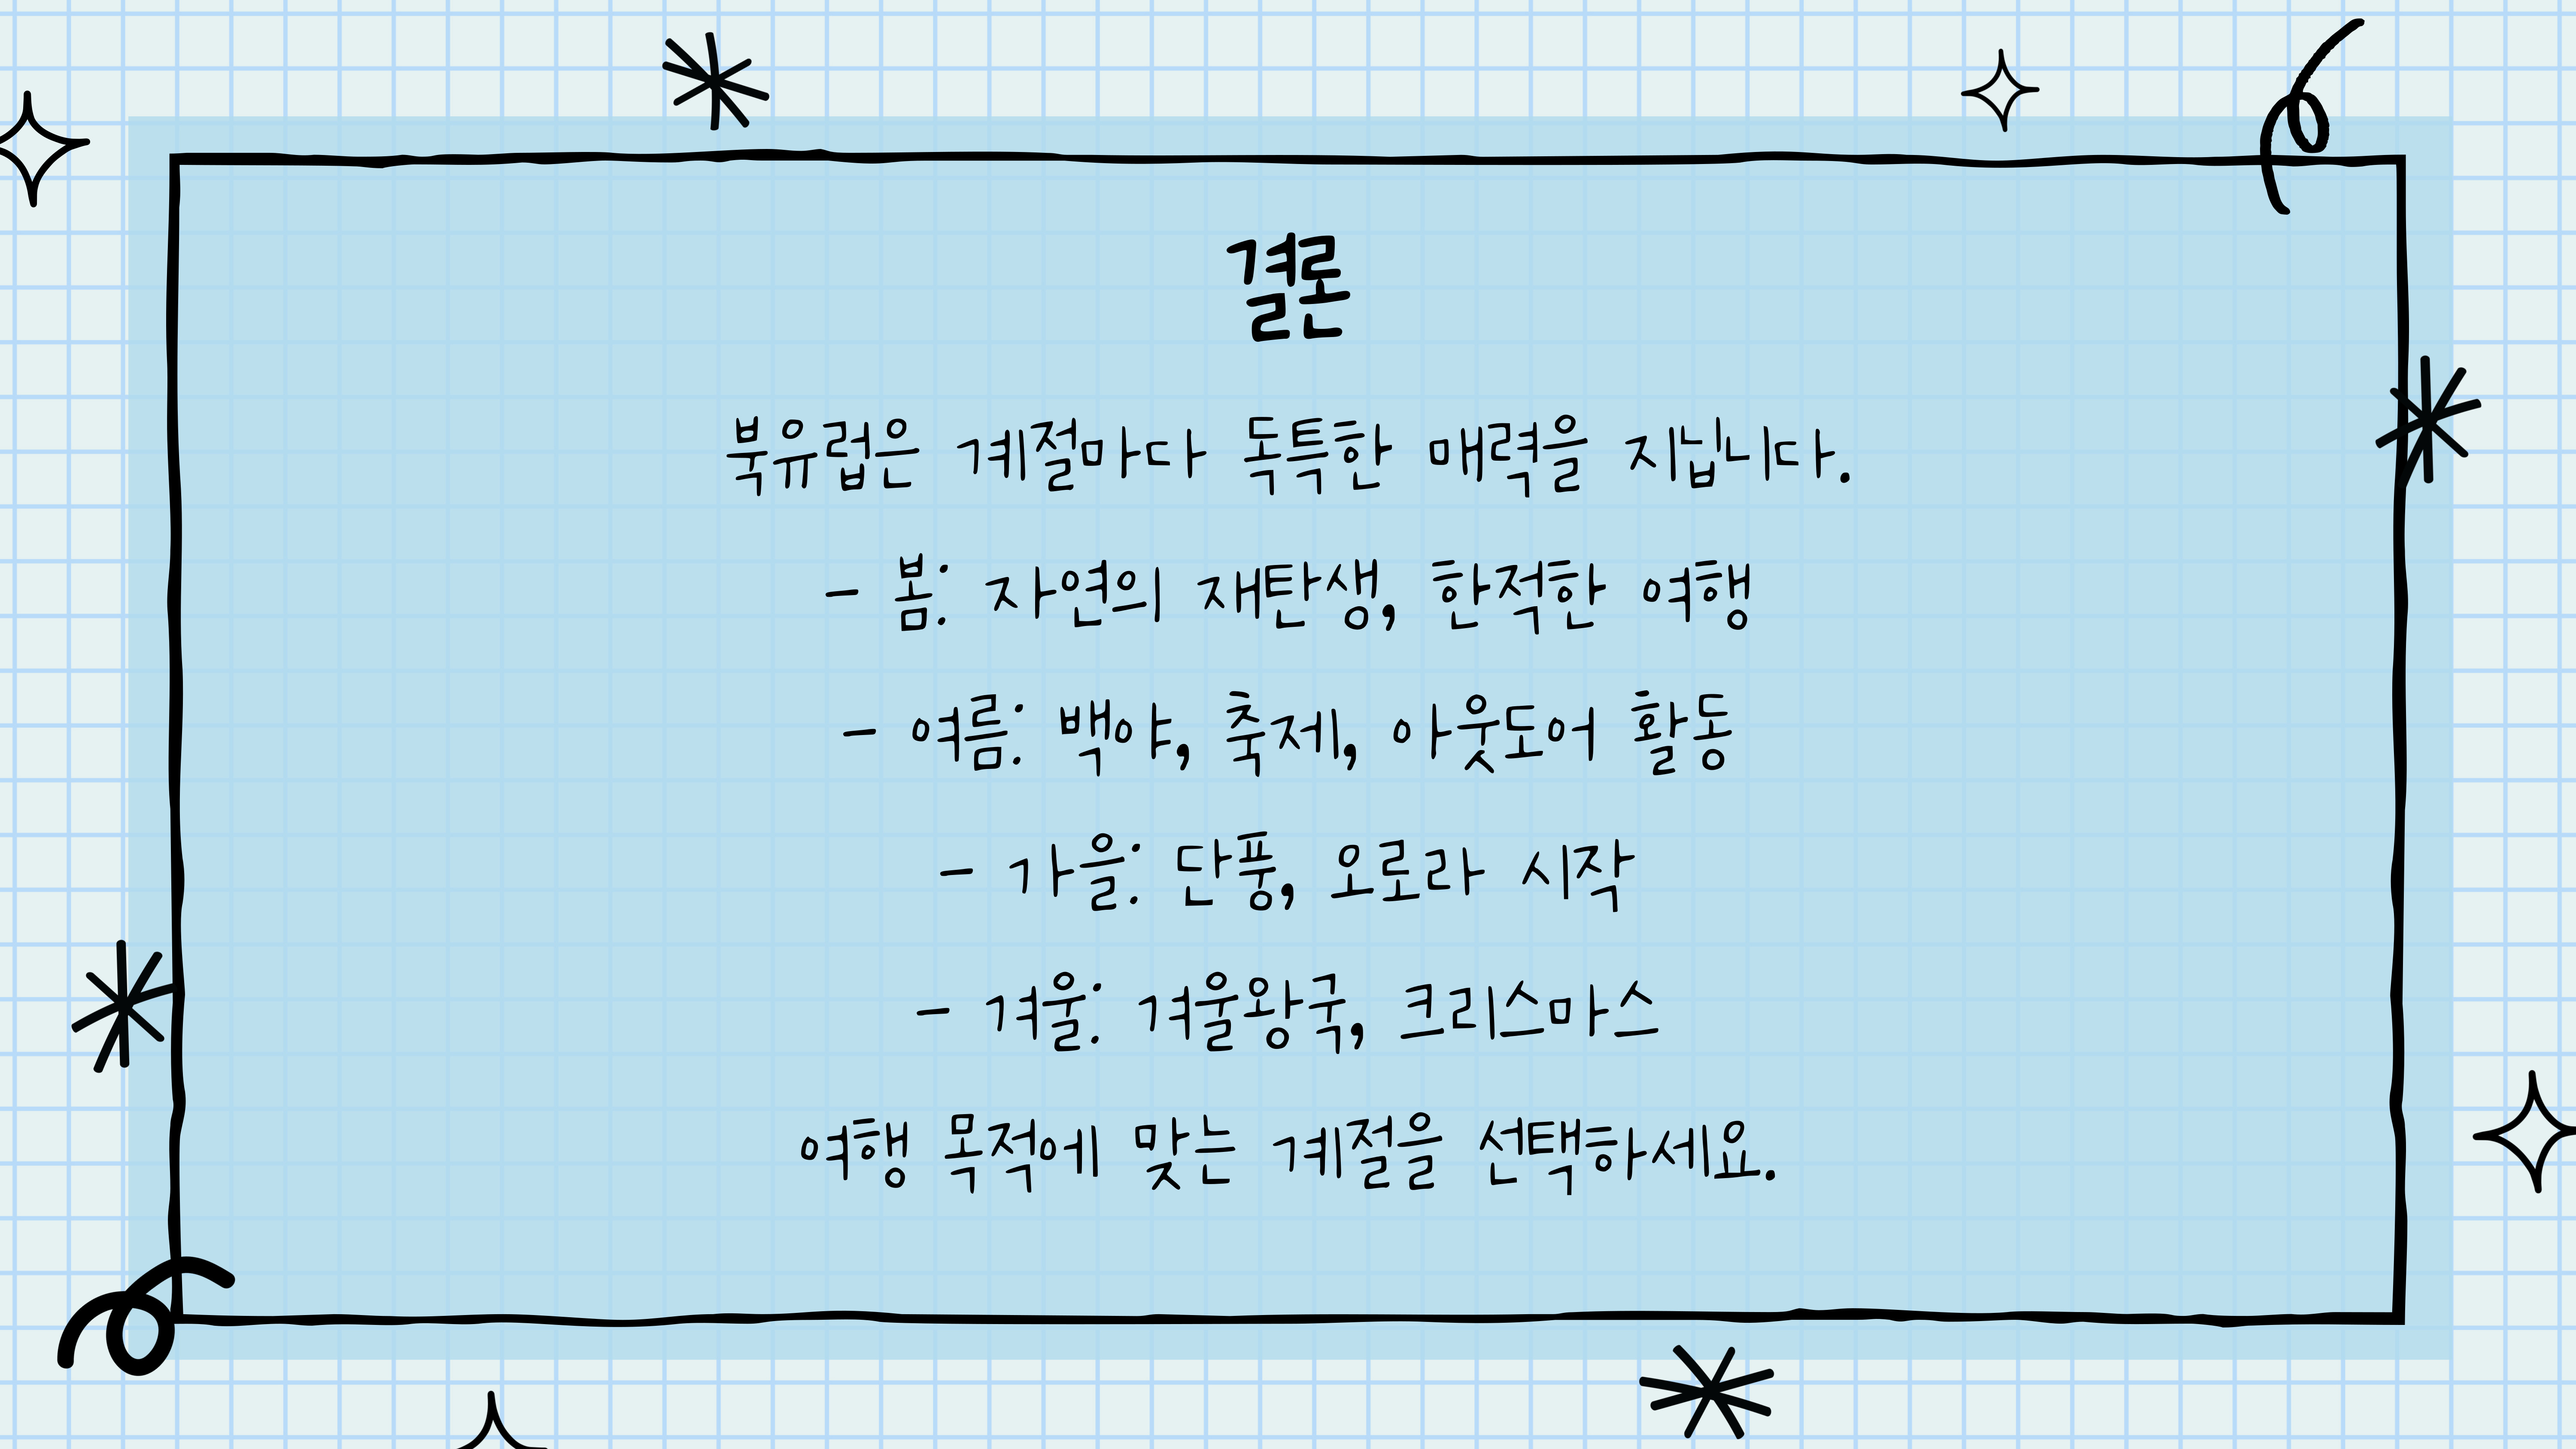 결론
북유럽은 계절마다 독특한 매력을 지닙니다.
- 봄: 자연의 재탄생, 한적한 여행
- 여름: 백야, 축제, 아웃도어 활동
- 가을: 단풍, 오로라 시작
- 겨울: 겨울왕국, 크리스마스
여행 목적에 맞는 계절을 선택하세요.